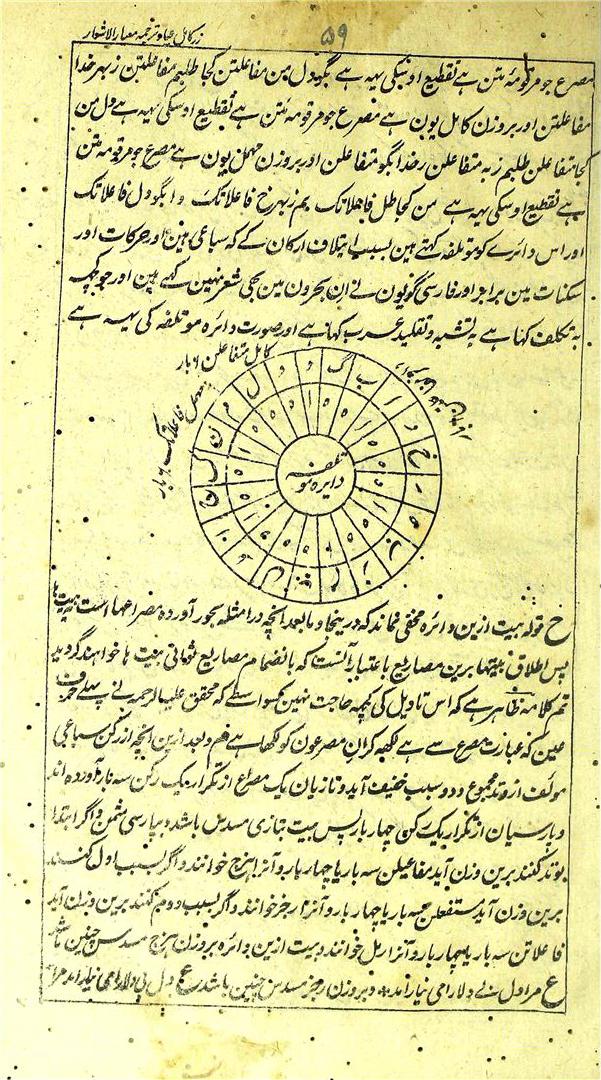 زر کامل عیار ترجمہ معیار الاشعار
۵۹
مصرع جو مرقومۂ متن ہے تقطیع اوسکی یہہ ہے بگیدل من مفاعلتن کجا طلبم مفاعلتن زبہر خدا
مفاعلتن اور بروزن کامل یون ہے مصرع جو مرقومہ متن ہے تقطیع اوسکی یہہ ہے ول من
کجا متفاعلن طلبم زبہ متفاعلن رخدا بگو متفاعلن اور بروزن مہمل یون ہے مصرع جو مرقومہ متن
ہے تقطیع اوسکی یہہ ہے من کجا طل فاعلاتک بم زبہر خ فاعلاتک دا بگو دل فاعلاتک
اور اس دائرے کو موتلفہ کہتے ہین بسبب ایتلاف ارکان کے کہ سباعی ہین اور حرکات اور
سکنات مین برابر اور فارسی گویون نے ان بحرون مین کبھی شعر نہین کہے ہین اور جو کچھ
بہ تکلف کہا ہے بہ تشبہ و تقلید عرب کہا ہے اور صورت دائرہ موتلفہ کی یہہ ہے
کامل متفاعلن ۶ بار
مہمل فاعلاتک ۶ بار
دایرہ موتلفہ
قولہ بیت ازین دائرہ مخفی نماند کہ درینجا و مابعد انچہ در امثلہ بحور آوردہ مصراعہا است نہ بیتہا
پس اطلاق بیتہا برین مصاریع باعتبار آنست کہ بانضمام مصاریع ثوانی بیت ہا خواہند گردید
تم کلامہ ظاہر ہے کہ اس تاویل کی کچھہ حاجت نہین کسواسطے کہ محقق علیہ الرحمہ نے پہلے حرف
عین کہ عبارت مصرع سے ہے لکھہ کر ان مصرعون کو لکھا ہے قم و بعد ازین انچہ از رکن سباعی
مولف از وتد مجموع و دو سبب خفیف آید و تازیان یک مصراع از تکرار یک رکن سہ بار آوردہ اند
و پارسیان از تکرار یک رکن چہار بار پس بیت بتازی مسدس باشد و بپارسی مثمن و اگر ابتدا
بوتد کنند برین وزن آید مفاعیلن سہ بار یا چہار بار و آنرا ہزج خوانند و اگر بسبب اول کنند
برین وزن آید مستفعلن سہ بار یا چہار بار و آنرا رجز خوانند و اگر بسبب دوم کنند برین وزن آید
فاعلاتن سہ بار یا چہار بار و آنرا رمل خوانند و بیت ازین دائرہ بروزن ہزج مسدس چنین باشد
ع مرا دل بے دلارامی نیارامد و بروزن رجز مسدس چنین باشد ع دل بی دلارامی نیارامد مرا